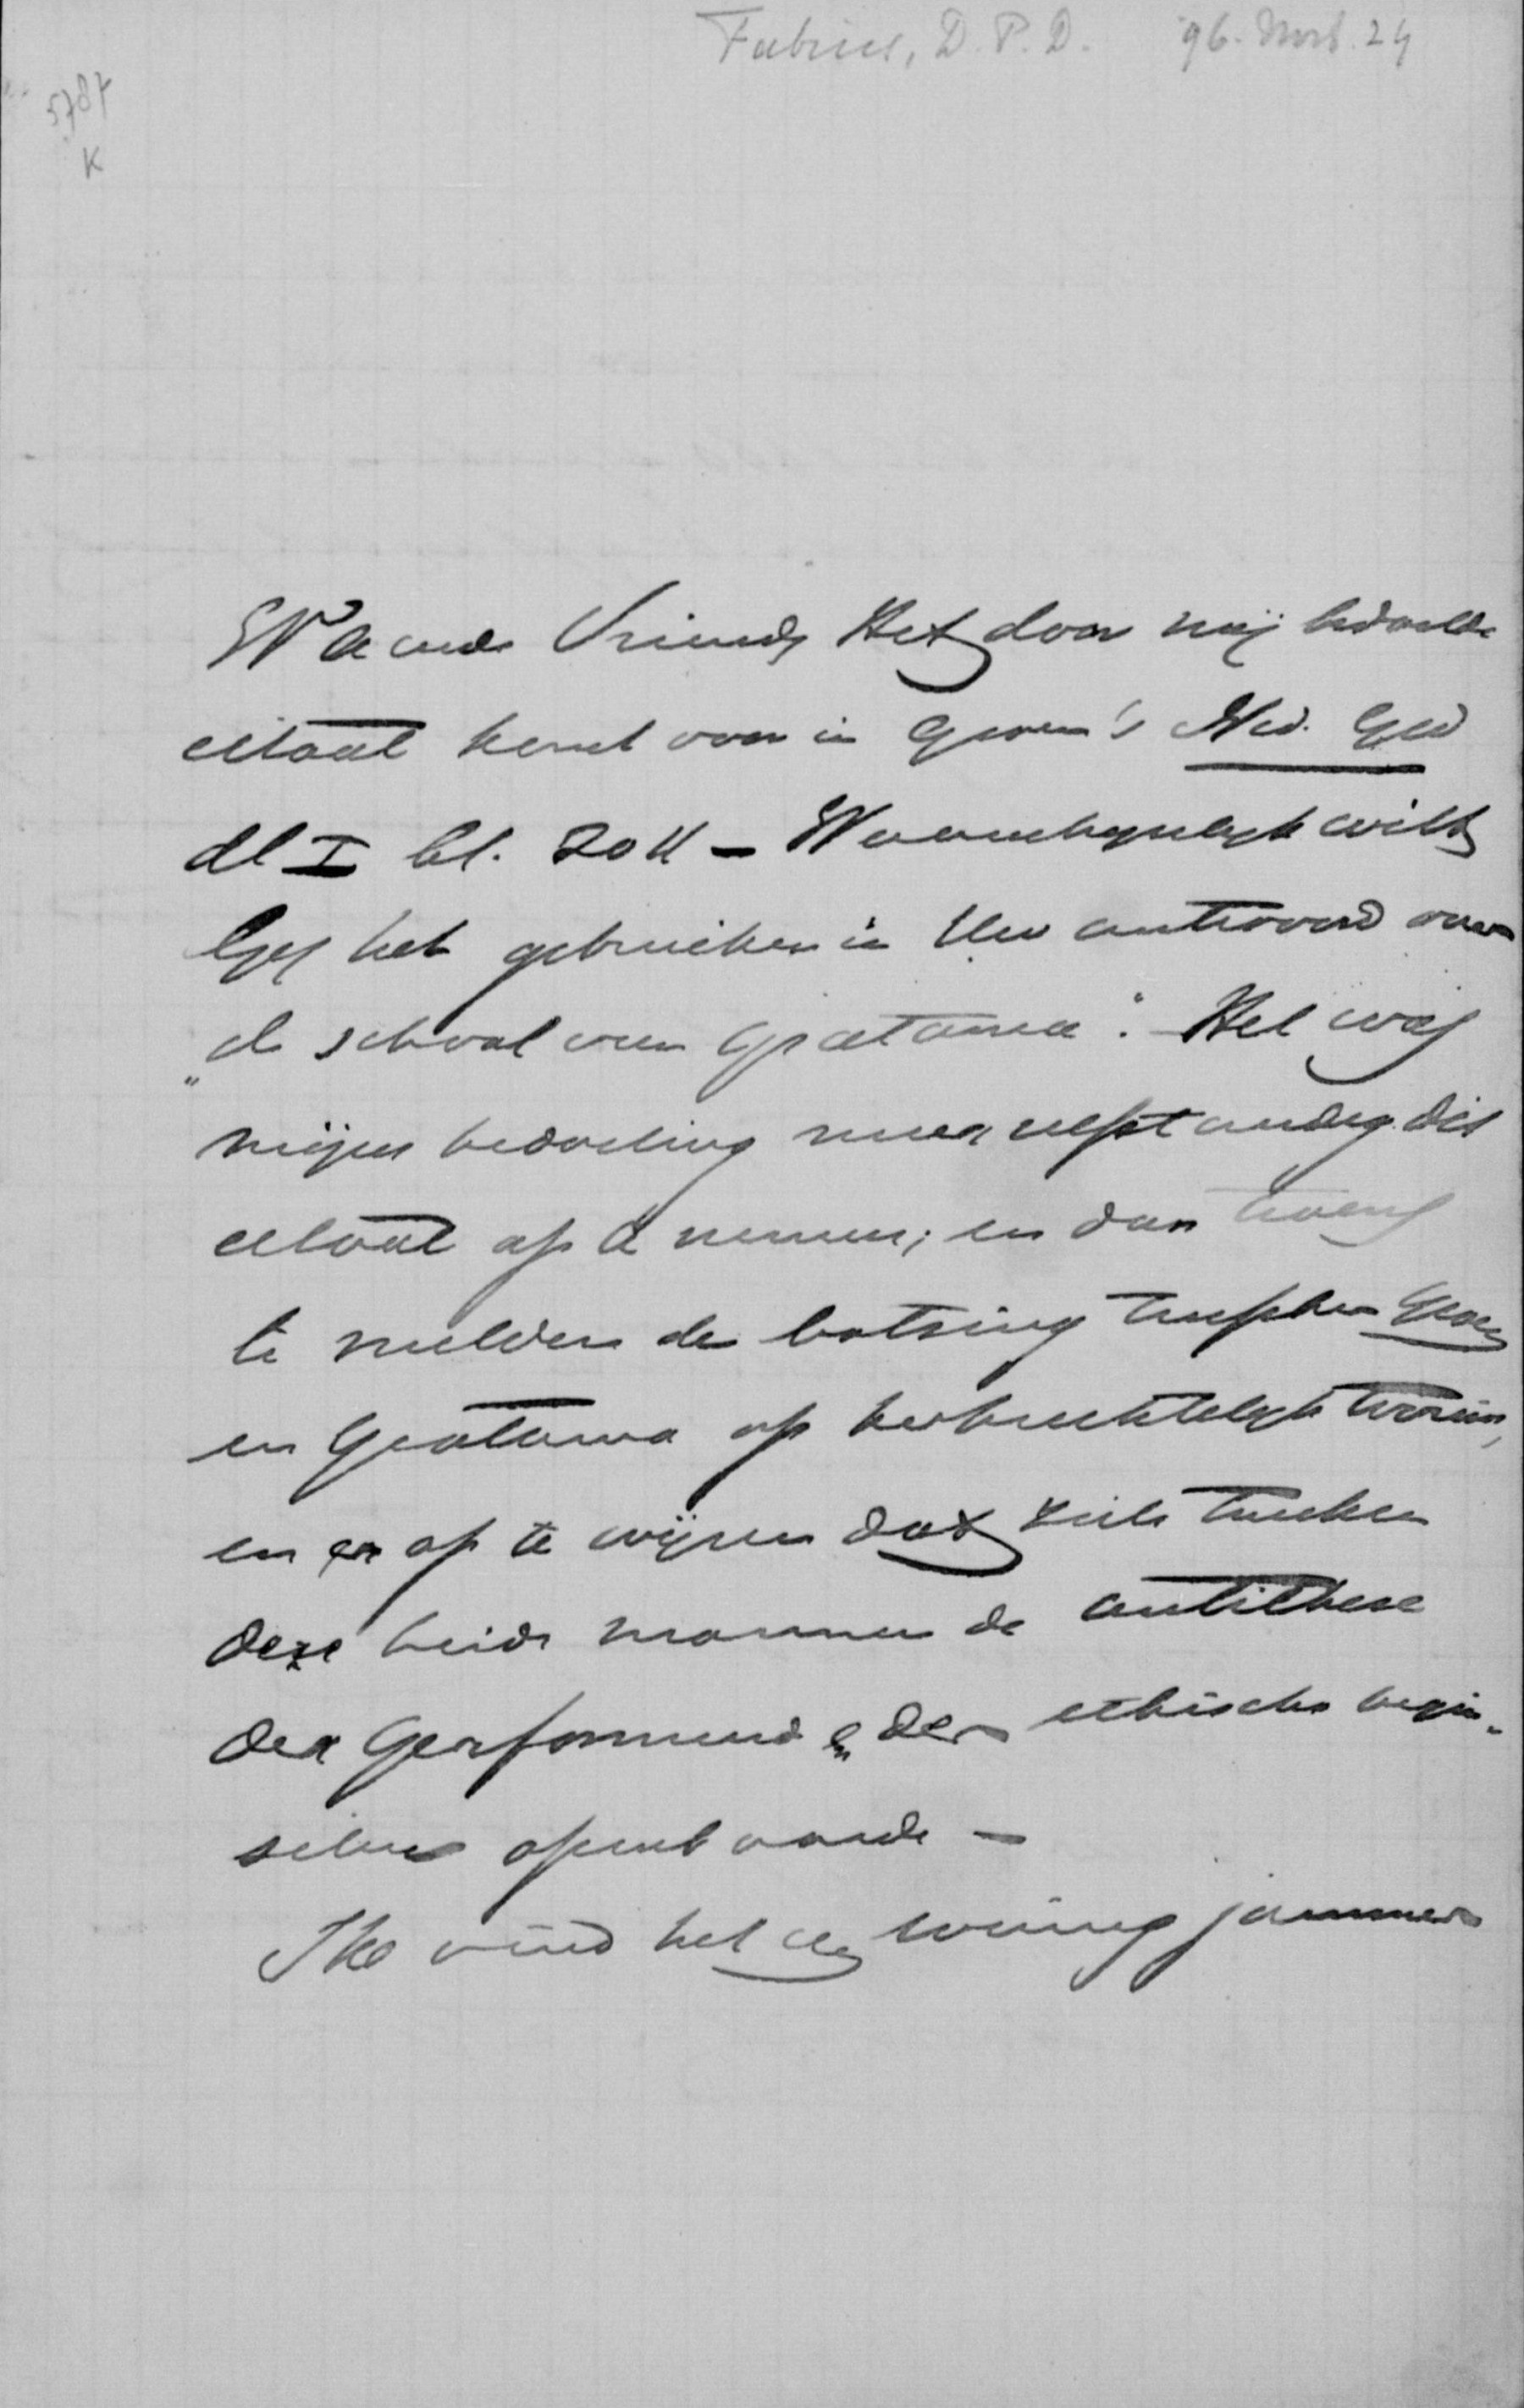 Fabius, D.P.D. '96. 24
5787
K
Waarde Vriend, Het door mij bedoelde
citaat komt voor in Groen's Ned. Ged
dl I bl. 204 – Waarschijnlijk wilt
Gij het gebruiken in Uw antwoord aan
"de school van Gratama". Het was
mijne bedoeling meer zelfstandig dit
citaat op te nemen; en dan tevens
te melden de botsing tusschen Groen
en Gratama op kerkrechtelijk terrein,
en er op te wijzen dat zich tusschen
deze beide mannen de antithese
der Gereformeerde en der ethische begin-
selen openbaarde –
Ik vind het een weinig jammer